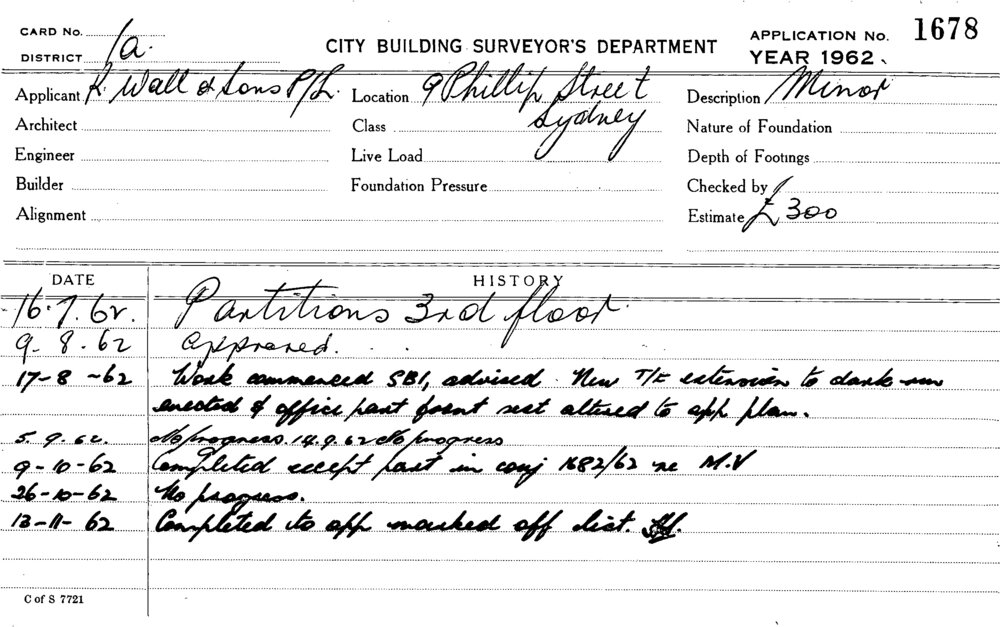 CARD No.
1a.
DISTRICT
CITY BUILDING SURVEYOR'S DEPARTMENT
APPLICATION No. 1678
YEAR 1962.
Applicant R. Wall & Sons P/L. Location 9 Phillip Street Description Minor
Architect Class Sydney Nature of Foundation
Engineer Live Load Depth of Footings
Builder Foundation Pressure Checked by
Alignment Estimate £300
DATE HISTORY
16.7.62. Partitions 3rd floor.
9-8-62 approved.
17-8-62 Work commenced SBI, advised. New T/F extension to dark rm
erected & office part front not altered to app plan.
5.9.62. No progress. 14.9.62 No progress
9-10-62 Completed except part in conj 1682/62 re M.V
26-10-62 No progress.
13-11-62 Completed to app marked off list.
C of S 7721